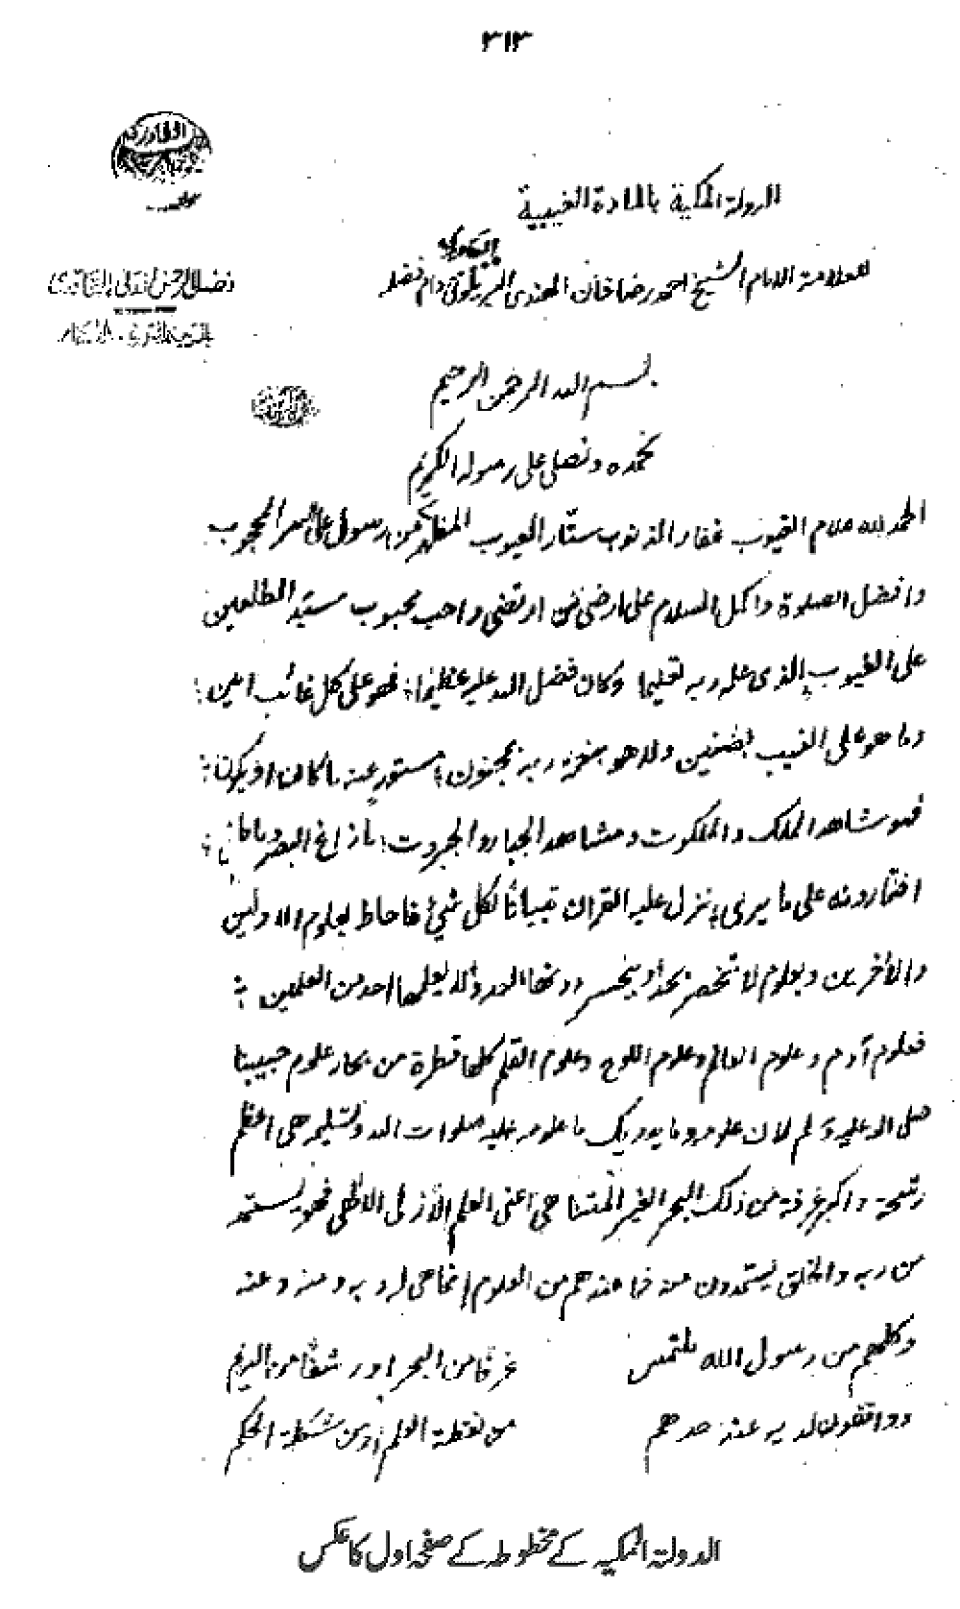 ٣١٣
الدولة المكية بالمادة الغيبية
للعلامة الامام الشيخ احمد رضا خان الهندى البريلوى دام فضله
بسم الله الرحمن الرحيم
نحمده ونصلى على رسوله الكريم
الحمد لله علام الغيوب غفار الذنوب ستّار العيوب المظهر من ارسول على السر المحجوب
وافضل الصلوة واكمل السلام على ارضى من ارتضى واحب محبوب سيّد المطلعين
على الغيوب الذى علمه ربه تعليما وكان فضل الله عليه عظيما؛ فهو على كل غائب امين؛
وما هو على الغيب بضنين ولا هو بنعمة ربه بمجنون؛ مستور عنه ما كان او يكون؛
فهو شاهد الملك والملكوت ومشاهد الجبار والجبروت؛ ما زاغ البصر وما طغى؛
افتمارونه على ما يرى؛ نزل عليه القران تبيانًا لكل شئ فاحاط بعلوم الاولين
والأخرين وبعلوم لا تنحصر بحد وينحسر دونها العد ولا يعلمها احد من العلمين؛
فعلوم آدم وعلوم العالم وعلوم اللوح وعلوم القلم كلها قطرة من بحار علوم حبيبنا
صلى الله عليه وسلم لان علومه وما يدريك ما علومه عليه صلوات الله وتسليمه هى اعظم
رشحة واكبر غرفة من ذلك البحر الغير المتناهى اعنى العلم الأزلى الالهى فهو يستمد
من ربه والخلق يستمدون منه فما عندهم من العلوم إنما هى له وبه ومنه وعنه
وكلهم من رسول الله ملتمس غرفا من البحر او رشفًا من الديم
وواقفون لديه عند حدهم من نقطة العلم او من شكلة الحكم
الدولة المکیہ کے مخطوطہ کے صفحہ اول کا عکس